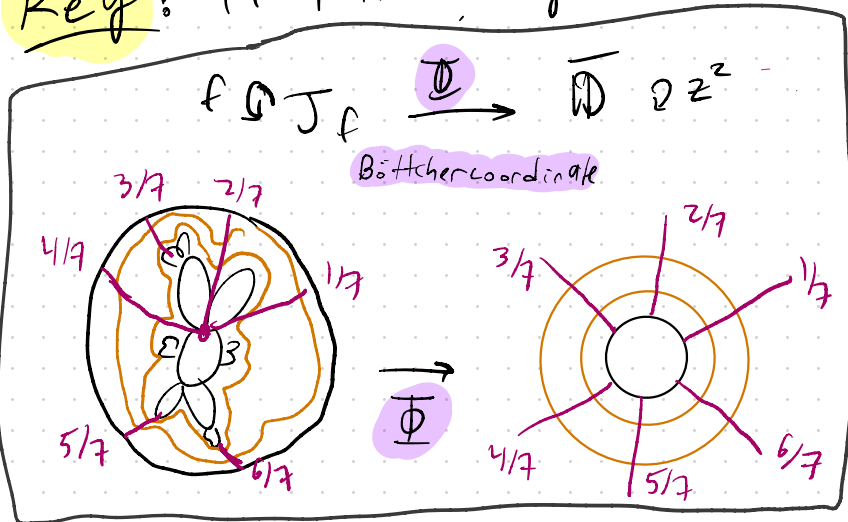 Key:
f J_f Φ 𝔻̅ z²
Böttcher coordinate
3/7 2/7
4/7 1/7
5/7 6/7
Φ
2/7
3/7 1/7
4/7 5/7 6/7